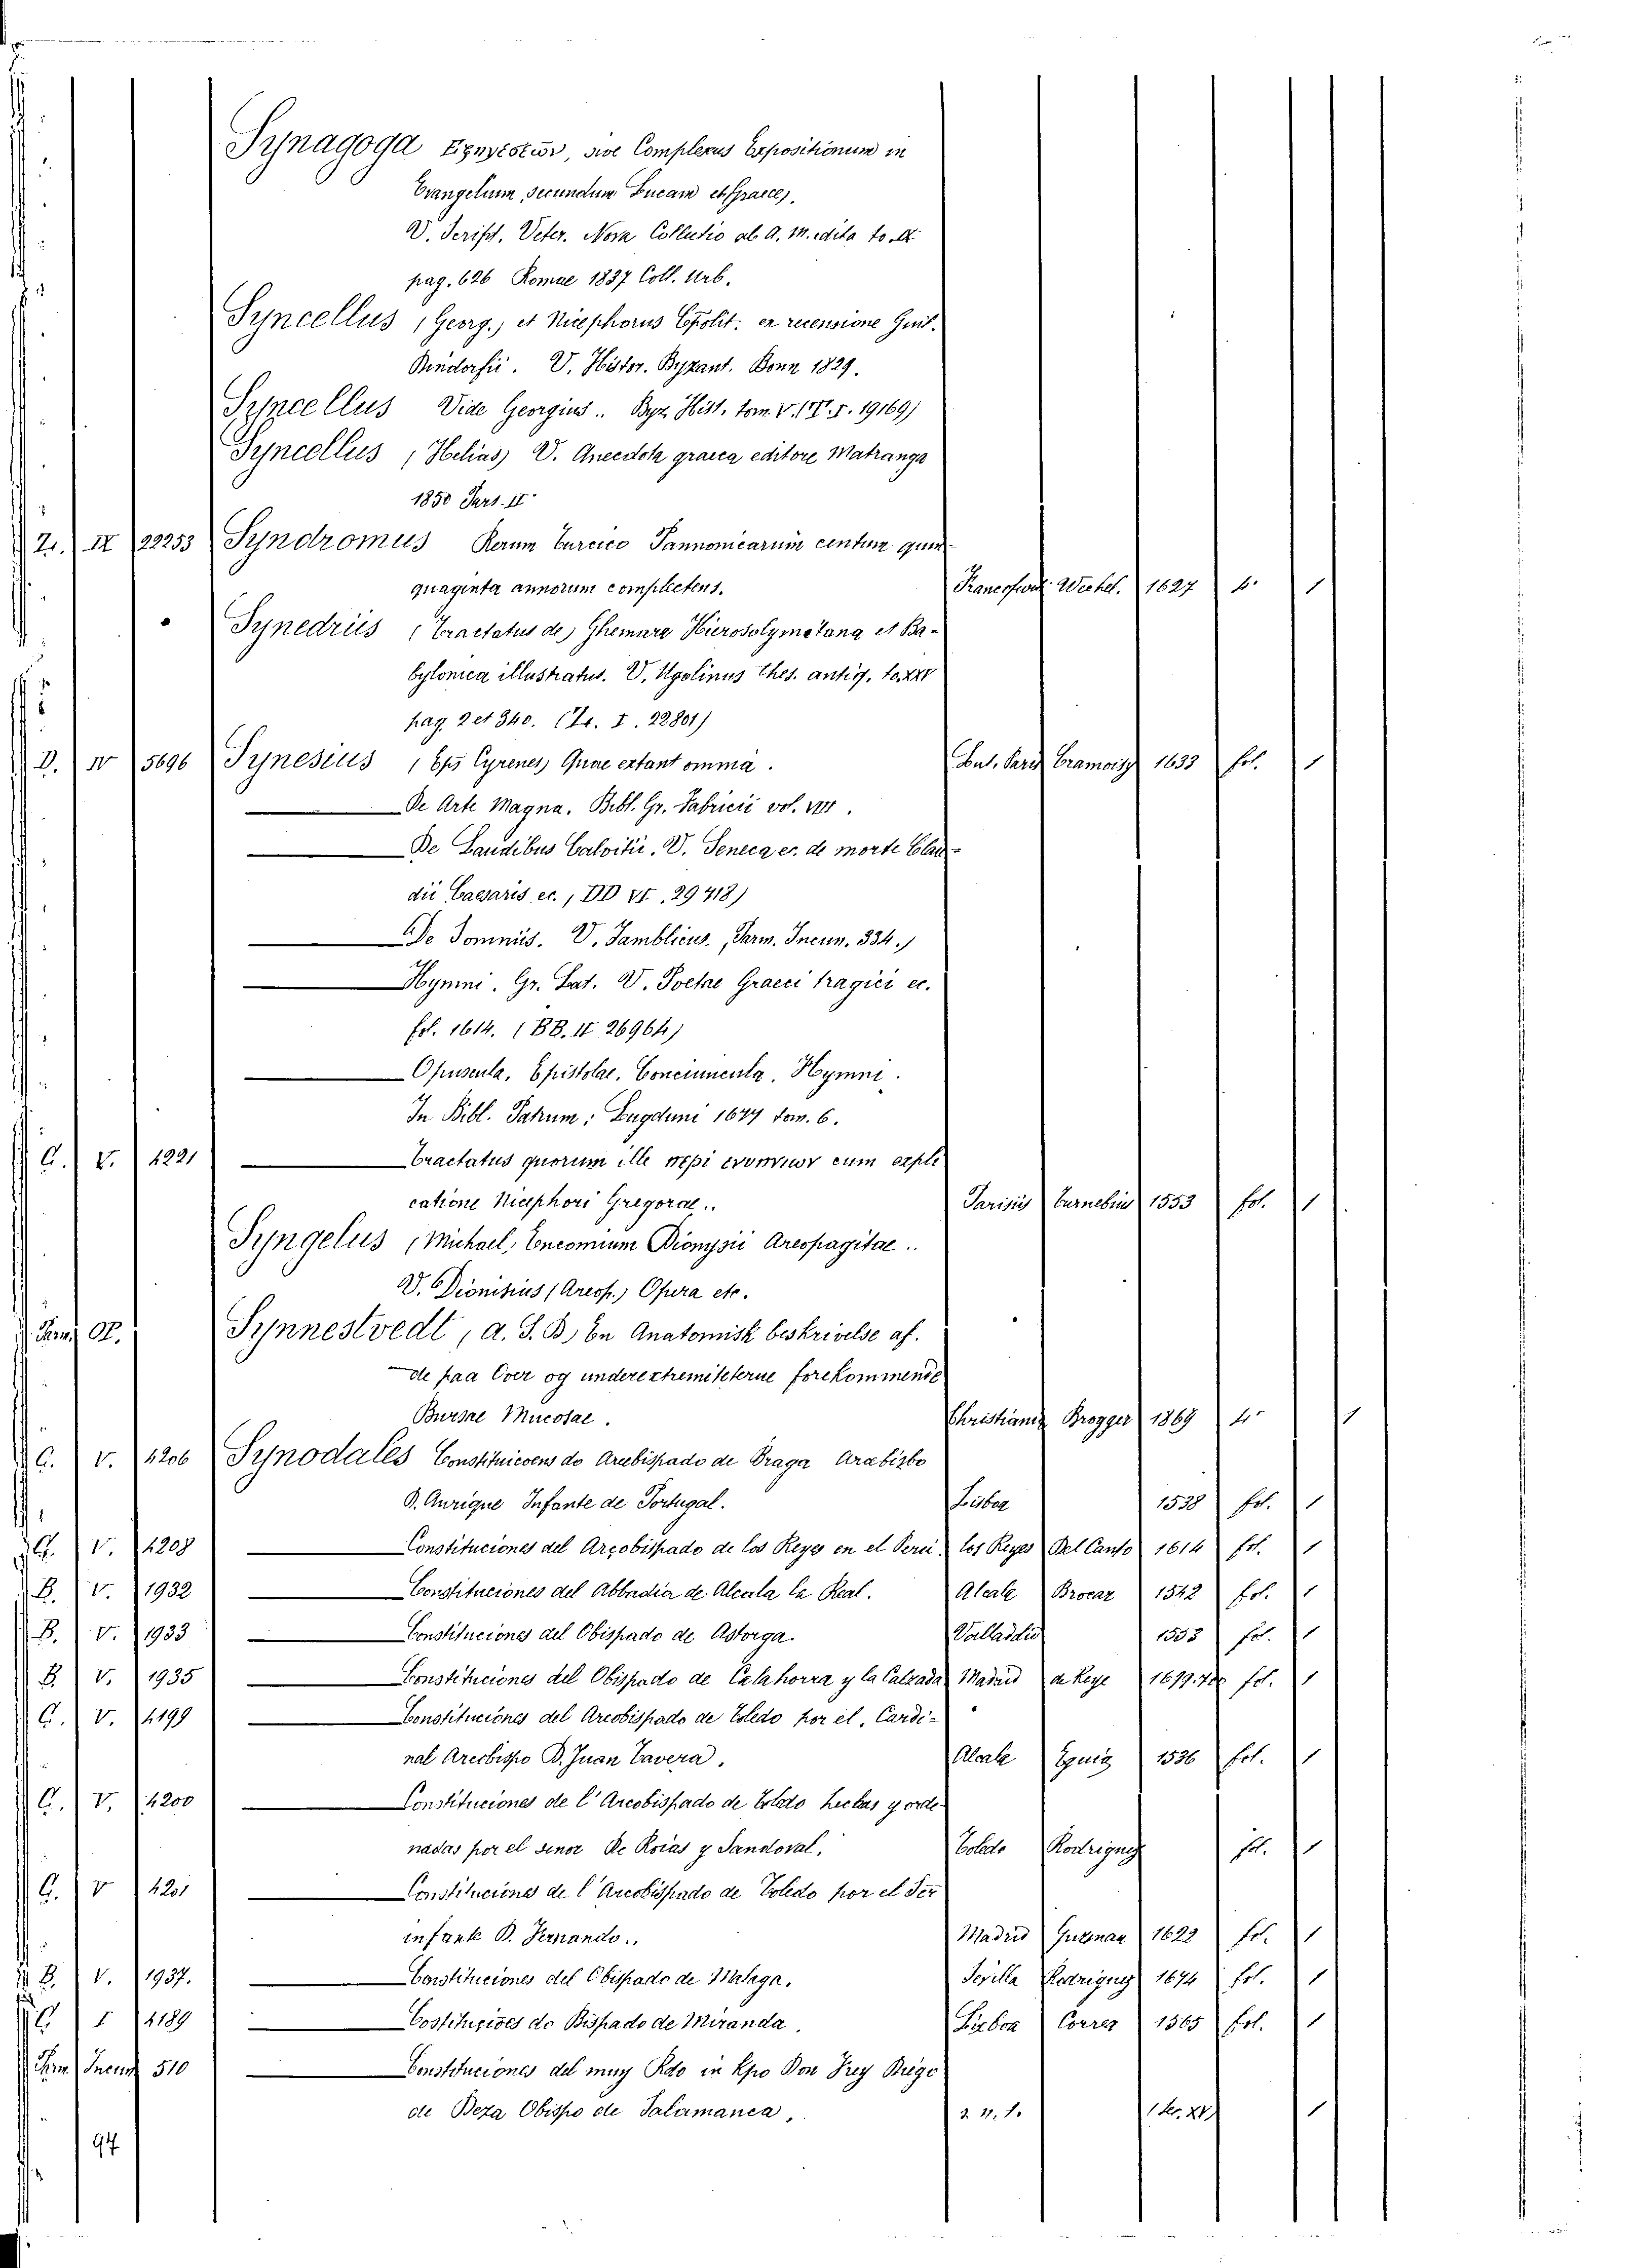 Synagoga Εξηγεσεων, sive Complexus Expositionum in
Evangelium, secundum Lucam et Graece).
V. Script. Veter. Nova Collectio ab A. M. edita to.
pag. 626 Romae 1837 Coll. Urb.
Syncellus (Georg.) et Nicephorus Cpolit. ex recensione Guil.
Dindorfii. V. Histor. Byzant. Bonn 1829.
Syncellus Vide Georgius.. Byz. Hist. tom. V. 19169)
Syncellus (Helias) V. Anecdota graeca editore Matranga
1850 Pars. II
Z. IV 22253 Syndromus Rerum Turcico Pannonicarum centum quin-
quaginta annorum complectens. Francofurti Wechel. 1627 4° 1
• Synedriis (Tractatus de) Ghemara Hierosolymetana et Ba-
bylonica illustratus. V. Ugolinus Thes. antiq. to. XXV
pag. 2 et 340. (Zz. I. 22801)
D. IV 5696 Synesius (Eps Cyrenes) Quae extant omnia. Lut. Paris Cramoisy 1633 fol. 1
De Arte Magna. Bibl. Gr. Fabricii vol. VIII.
De Laudibus Calvitii. V. Seneca ec. de morte Clau-
dii Caesaris ec. (DD VI. 29718)
De Somniis. V. Jamblicus. (Parm. Incun. 334.)
Hymni. Gr. Lat. V. Poetae Graeci tragici ec.
fol. 1614. (BB. II 26964)
Opuscula, Epistolae, Conciuncula, Hymni.
In Bibl. Patrum: Lugduni 1677 tom. 6.
C. V. 4221 Tractatus quorum ille περι ενυπνιων cum expli
catione Nicephori Gregorae.. Parisiis Turnebius 1553 fol. 1
Syngelus (Michael) Encomium Dionysii Areopagitae..
V. Dionisius (Areop.) Opera etc.
Synnestvedt, (A. S. B.) En Anatomisk beskrivelse af.
de paa Over og underextremiteterne forekommende
Bursae Mucosae. Christiania Brogger 1869 4° 1
C. V. 4206 Synodales Constituicoens do Arcebispado de Braga Arcebisbo
D. Anrique Infante de Portugal. Lisboa 1538 fol. 1
C. V. 4208 Constituciones del Arçobispado de los Reyes en el Peru. Los Reyes Del Canto 1614 fol. 1
B. V. 1932 Constituciones del Abbadia de Alcala la Real. Alcala Brocar 1542 fol. 1
B. V. 1933 Constituciones del Obispado de Astorga. Valladid 1553 fol. 1
B. V. 1935 Constituciones del Obispado de Calahorra y la Calzada Madrid de Rege 1699.700 fol. 1
C. V. 4199 Constituciones del Arcobispado de Toledo por el Cardi-
nal Arcobispo D. Juan Tavera. Alcala Eguia 1536 fol. 1
C. V. 4200 Constituciones de l'Arcobispado de Toledo hechas y orde-
nadas por el senor De Roias y Sandoval. Toledo Rodriguez fol. 1
C. V 4201 Constituciones de l'Arcobispado de Toledo por el Ser
infante D. Fernando.. Madrid Guzman 1622 fol. 1
B. V. 1937. Constituciones del Obispado de Malaga. Sevilla Rodriguez 1674 fol. 1
C I 4189 Costituçioes do Bispado de Miranda. Lisboa Correa 1565 fol. 1
Parm. Incun. 510 Constituciones del muy Rdo in Xpo Don Frey Diego
de Deza Obispo de Salamanca. s. n. t. 1
94